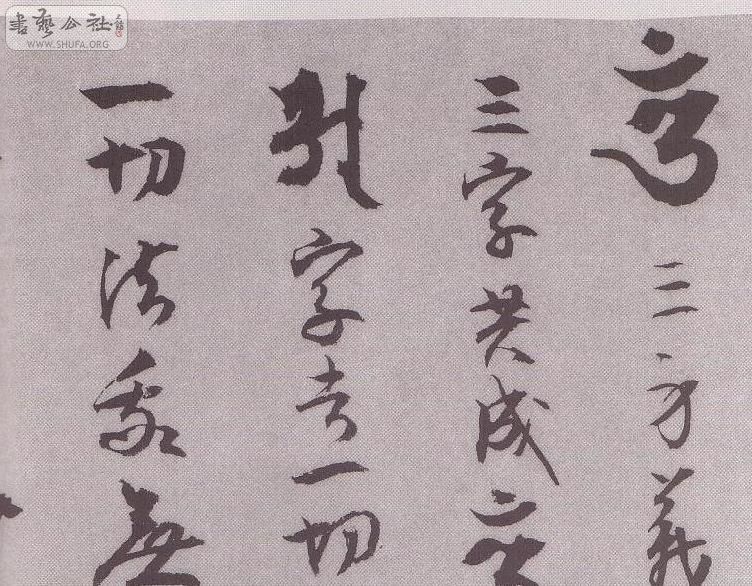 書藝公社
WWW.SHUFA.ORG
三身義
三字共成
字者一切
一切法無